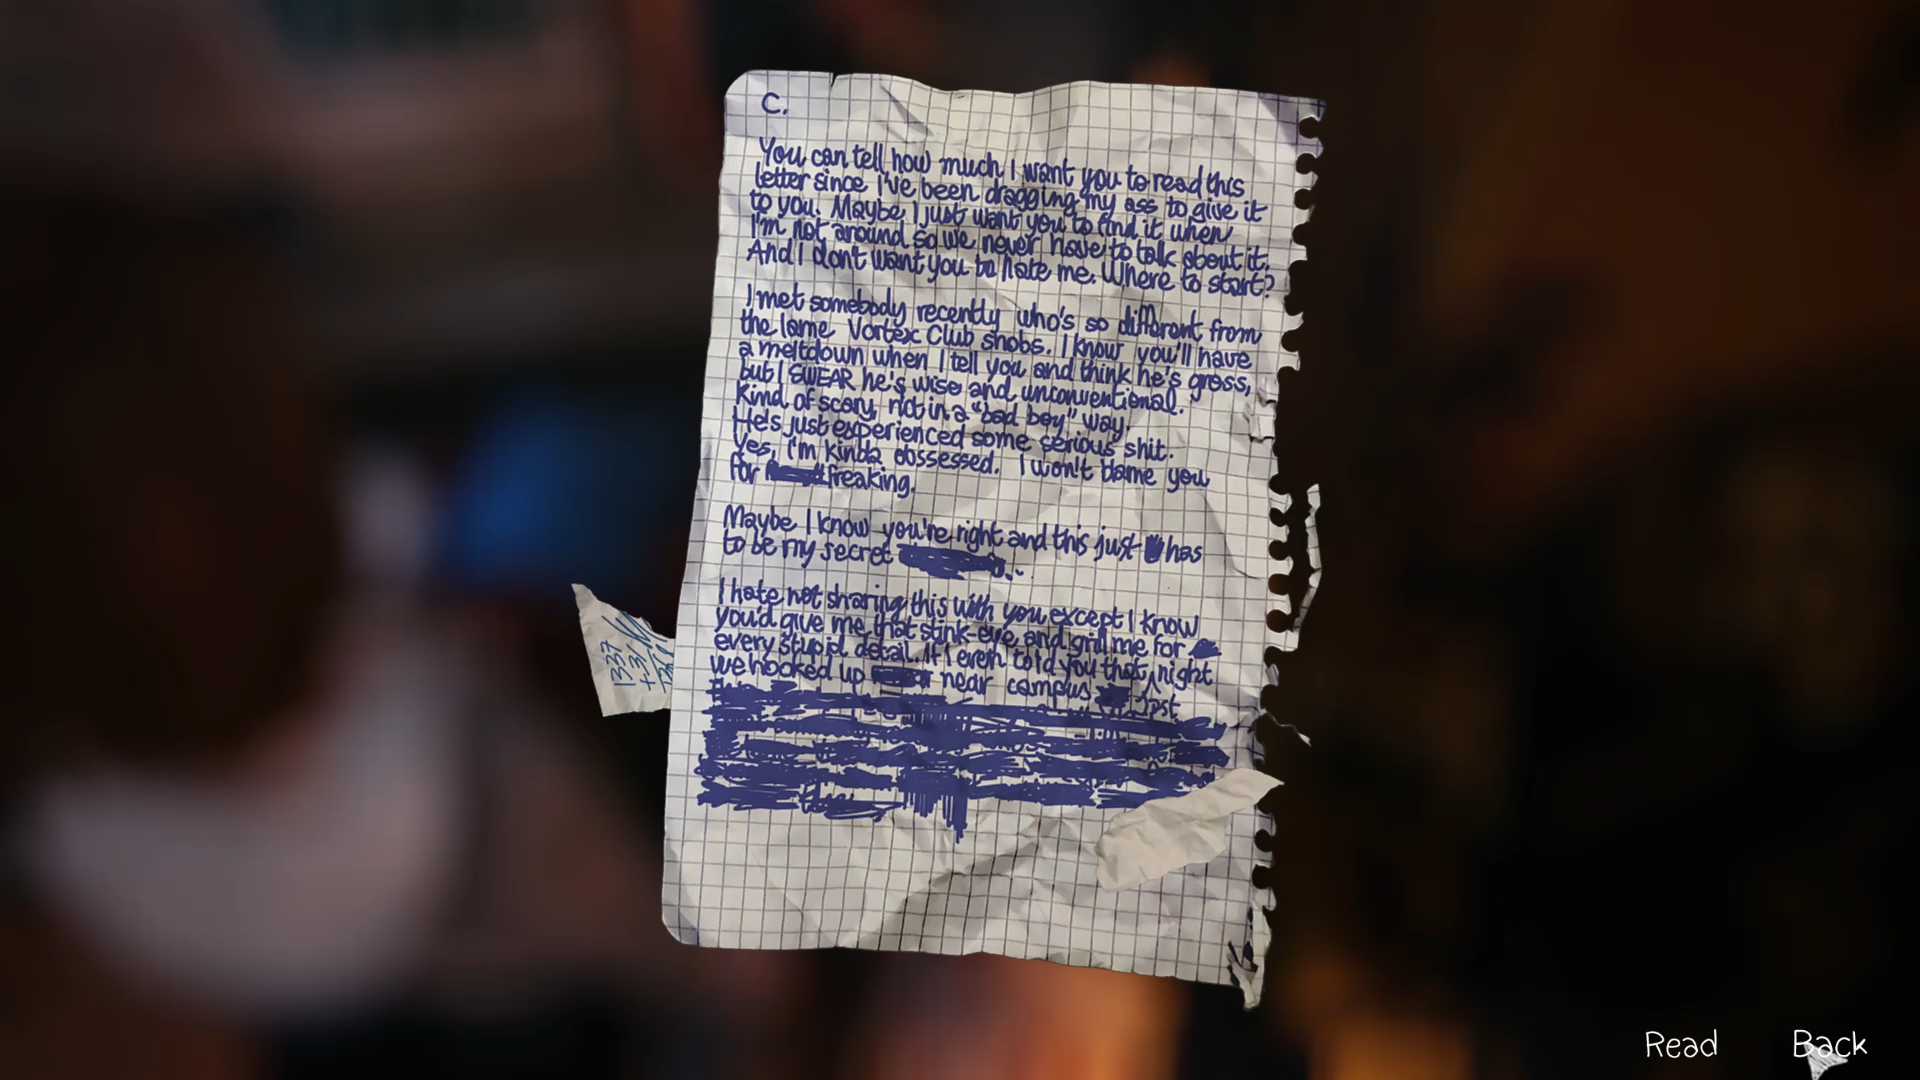 C.
You can tell how much I want you to read this
letter since I've been dragging my ass to give it
to you. Maybe I just want you to find it when
I'm not around so we never have to talk about it.
And I dont want you to hate me. Where to start?
I met somebody recently who's so different from
the lame Vortex Club snobs. I know you'll have
a meltdown when I tell you and think he's gross,
but I SWEAR he's wise and unconventional.
Kind of scary, not in a "bad boy" way.
He's just experienced some serious shit.
Yes, I'm kinda obsessed. I won't blame you
for freaking.
Maybe I know you're right and this just has
to be my secret
I hate not sharing this with you except I know
you'd give me that stink-eye and grill me for
every stupid detail. If I even told you that night
we hooked up near campus
1337
Read Back